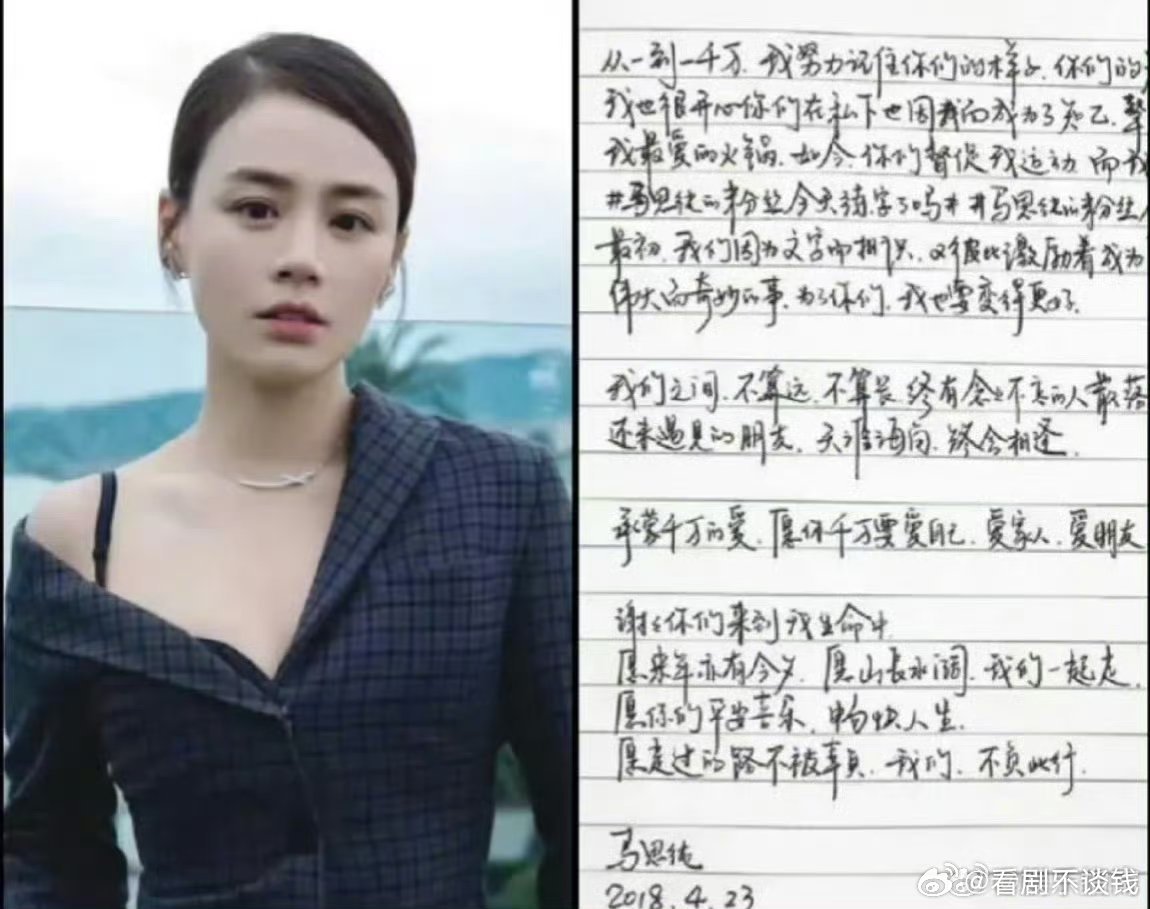 从一到一千万，我努力记住你们的样子，你们的
我也很开心你们在私下也因我而成为了知己，
我最爱的火锅，如今，你们督促我运动，而我
#马思纯的粉丝今天练字了吗# #马思纯的粉丝
最初，我们因为文字而相识，又彼此激励着成为
伟大而奇妙的事，为了你们，我也要变得更好。
我们之间，不算远，不算长，终有念念不忘的人散落
还未遇见的朋友，天涯海角，终会相逢。
承蒙千万的爱，愿你千万要爱自己，爱家人，爱朋友
谢谢你们来到我生命中
愿来年亦有今夕，愿山长水阔，我们一起走，
愿你们平安喜乐，畅快人生。
愿走过的路不被辜负，我们，不负此行。
马思纯
2018.4.23
@看剧不谈钱